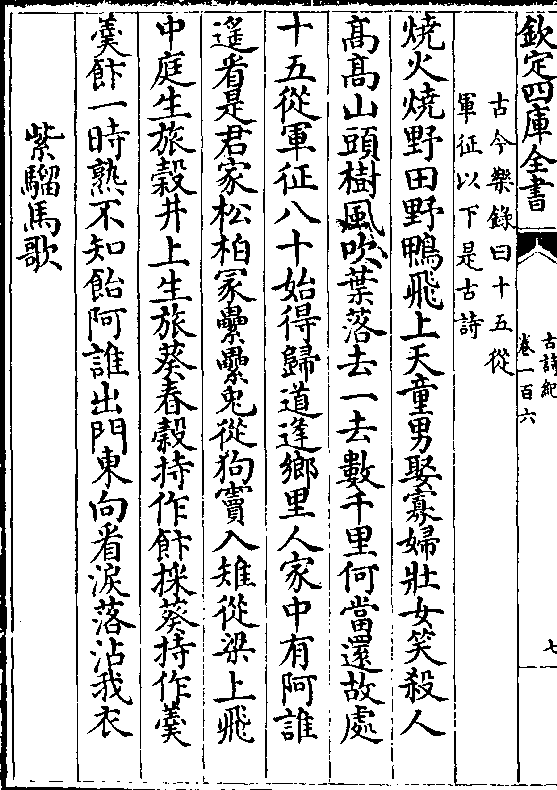 欽定四庫全書
古詩紀
卷一百六
七
古今樂錄曰十五從
軍征以下是古詩
燒火燒野田野鴨飛上天童男娶寡婦壯女笑殺人
髙髙山頭樹風吹葉落去一去數千里何當還故處
十五從軍征八十始得歸道逢鄉里人家中有阿誰
遥看是君家松柏冢纍纍兎從狗竇入雉從梁上飛
中庭生旅榖井上生旅葵舂榖持作飰採葵持作羮
羮飰一時熟不知飴阿誰出門東向看淚落沾我衣
紫騮馬歌